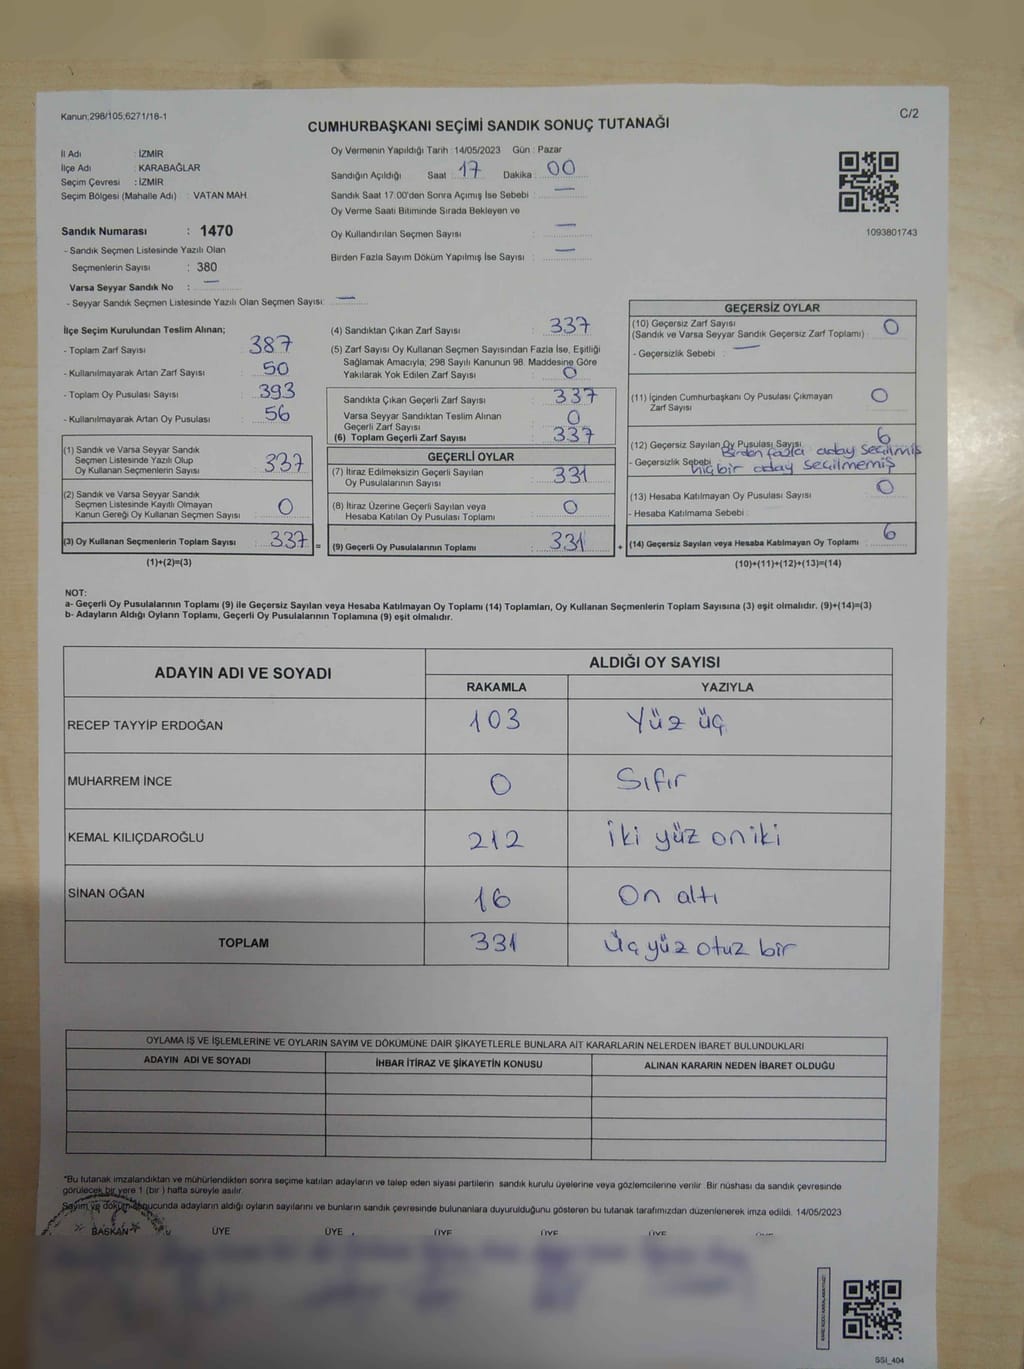 Kanun;298/105;6271/18-1
C/2
CUMHURBAŞKANI SEÇİMİ SANDIK SONUÇ TUTANAĞI
İl Adı : İZMİR
İlçe Adı : KARABAĞLAR
Seçim Çevresi : İZMİR
Seçim Bölgesi (Mahalle Adı) : VATAN MAH
Sandık Numarası : 1470
- Sandık Seçmen Listesinde Yazılı Olan
Seçmenlerin Sayısı : 380
Varsa Seyyar Sandık No : —
- Seyyar Sandık Seçmen Listesinde Yazılı Olan Seçmen Sayısı: —
Oy Vermenin Yapıldığı Tarih : 14/05/2023 Gün : Pazar
Sandığın Açıldığı Saat : 17 Dakika : 00
Sandık Saat 17.00'den Sonra Açımış İse Sebebi : —
Oy Verme Saati Bitiminde Sırada Bekleyen ve
Oy Kullandırılan Seçmen Sayısı : —
Birden Fazla Sayım Döküm Yapılmış İse Sayısı : —
1093801743
İlçe Seçim Kurulundan Teslim Alınan;
- Toplam Zarf Sayısı : 387
- Kullanılmayarak Artan Zarf Sayısı : 50
- Toplam Oy Pusulası Sayısı : 393
- Kullanılmayarak Artan Oy Pusulası : 56
(1) Sandık ve Varsa Seyyar Sandık
Seçmen Listesinde Yazılı Olup
Oy Kullanan Seçmenlerin Sayısı : 337
(2) Sandık ve Varsa Seyyar Sandık
Seçmen Listesinde Kayıtlı Olmayan
Kanun Gereği Oy Kullanan Seçmen Sayısı : 0
(3) Oy Kullanan Seçmenlerin Toplam Sayısı : 337 =
(1)+(2)=(3)
(4) Sandıktan Çıkan Zarf Sayısı : 337
(5) Zarf Sayısı Oy Kullanan Seçmen Sayısından Fazla İse, Eşitliği
Sağlamak Amacıyla; 298 Sayılı Kanunun 98. Maddesine Göre
Yakılarak Yok Edilen Zarf Sayısı : 0
Sandıkta Çıkan Geçerli Zarf Sayısı : 337
Varsa Seyyar Sandıktan Teslim Alınan
Geçerli Zarf Sayısı : 0
(6) Toplam Geçerli Zarf Sayısı : 337
GEÇERLİ OYLAR
(7) İtiraz Edilmeksizin Geçerli Sayılan
Oy Pusulalarının Sayısı : 331
(8) İtiraz Üzerine Geçerli Sayılan veya
Hesaba Katılan Oy Pusulası Toplamı : 0
(9) Geçerli Oy Pusulalarının Toplamı : 331 +
GEÇERSİZ OYLAR
(10) Geçersiz Zarf Sayısı
(Sandık ve Varsa Seyyar Sandık Geçersiz Zarf Toplamı) : 0
- Geçersizlik Sebebi : —
(11) İçinden Cumhurbaşkanı Oy Pusulası Çıkmayan
Zarf Sayısı : 0
(12) Geçersiz Sayılan Oy Pusulası Sayısı : 6
Birden fazla aday seçilmiş
- Geçersizlik Sebebi : hiç bir aday seçilmemiş
(13) Hesaba Katılmayan Oy Pusulası Sayısı : 0
- Hesaba Katılmama Sebebi :
(14) Geçersiz Sayılan veya Hesaba Katılmayan Oy Toplamı : 6
(10)+(11)+(12)+(13)=(14)
NOT:
a- Geçerli Oy Pusulalarının Toplamı (9) ile Geçersiz Sayılan veya Hesaba Katılmayan Oy Toplamı (14) Toplamları, Oy Kullanan Seçmenlerin Toplam Sayısına (3) eşit olmalıdır. (9)+(14)=(3)
b- Adayların Aldığı Oyların Toplamı, Geçerli Oy Pusulalarının Toplamına (9) eşit olmalıdır.
ADAYIN ADI VE SOYADI
ALDIĞI OY SAYISI
RAKAMLA YAZIYLA
RECEP TAYYİP ERDOĞAN 103 Yüz üç
MUHARREM İNCE 0 Sıfır
KEMAL KILIÇDAROĞLU 212 İki yüz on iki
SİNAN OĞAN 16 On altı
TOPLAM 331 Üç yüz otuz bir
OYLAMA İŞ VE İŞLEMLERİNE VE OYLARIN SAYIM VE DÖKÜMÜNE DAİR ŞİKAYETLERLE BUNLARA AİT KARARLARIN NELERDEN İBARET BULUNDUKLARI
ADAYIN ADI VE SOYADI İHBAR İTİRAZ VE ŞİKAYETİN KONUSU ALINAN KARARIN NEDEN İBARET OLDUĞU
*Bu tutanak imzalandıktan ve mühürlendikten sonra seçime katılan adayların ve talep eden siyasi partilerin sandık kurulu üyelerine veya gözlemcilerine verilir. Bir nüshası da sandık çevresinde
görülecek bir yere 1 (bir) hafta süreyle asılır.
Sayım ve döküm sonucunda adayların aldığı oyların sayılarını ve bunların sandık çevresinde bulunanlara duyurulduğunu gösteren bu tutanak tarafımızdan düzenlenerek imza edildi. 14/05/2023
BAŞKAN ÜYE ÜYE ÜYE ÜYE ÜYE
SSI_404